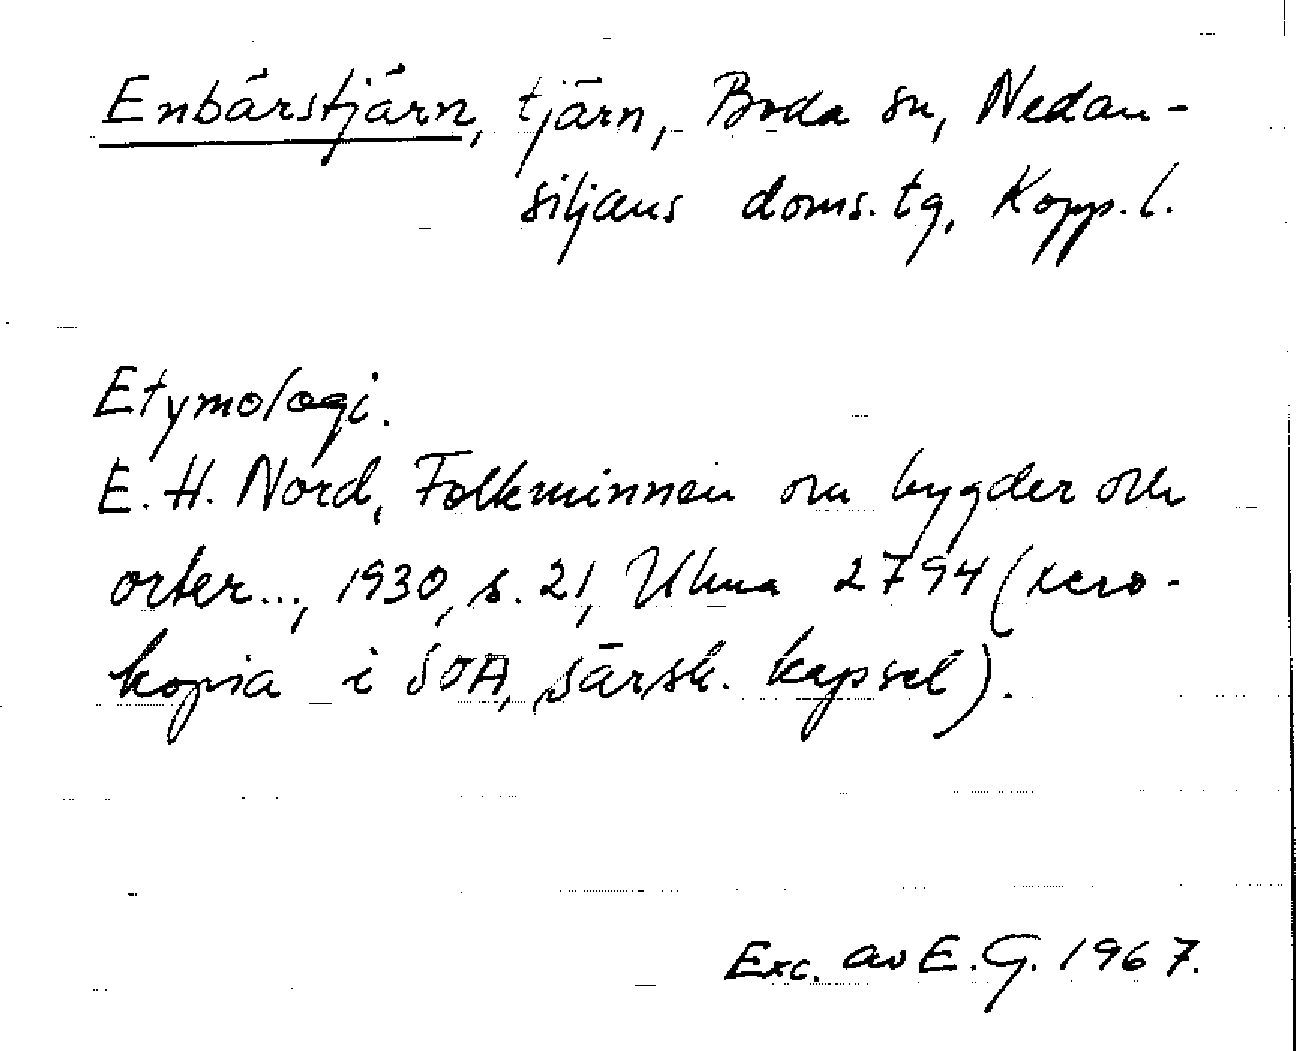 Enbärstjärn, tjärn, Boda sn, Nedan-
siljans doms. tg, Kopp. l.
Etymologi.
E. H. Nord, Folkminnen om bygder och
orter..., 1930, s. 21, Ulma 2794 (xero-
kopia i SOA, särsk. kapsel).
Exc. av E. G. 1967.